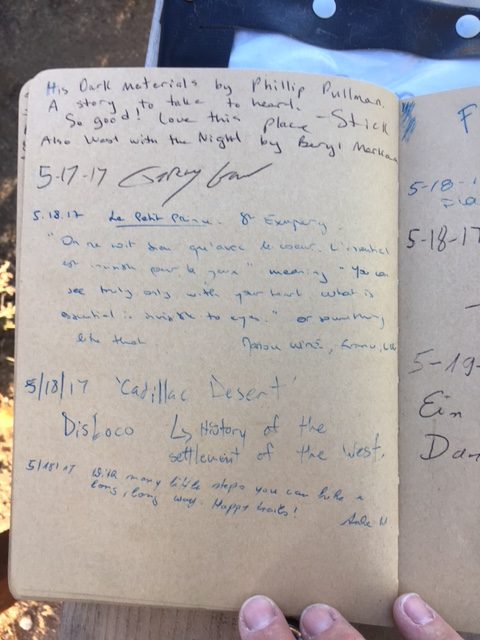 His Dark Materials by Phillip Pullman.
A story to take to heard.
So good! Love this place - Stick
Also West with the Night by Beryl Markam
5-17-17 Gary
5.18.17 Le Petit Prince. St Exupery.
"On ne voit bien qu'avec le coeur. L'essentiel
est invisible pour les yeux" meaning "You can
see truly only with your heart what is
essential is invisible to eyes." or something
like that.
5/18/17 'Cadillac Desert'
Disloco ↳ History of the
settlement of the West.
5/18/17 With many little steps you can hike a
long, long way. Happy trails!
F
5-18-1
5-18-17
5-19-
Ein
Dan